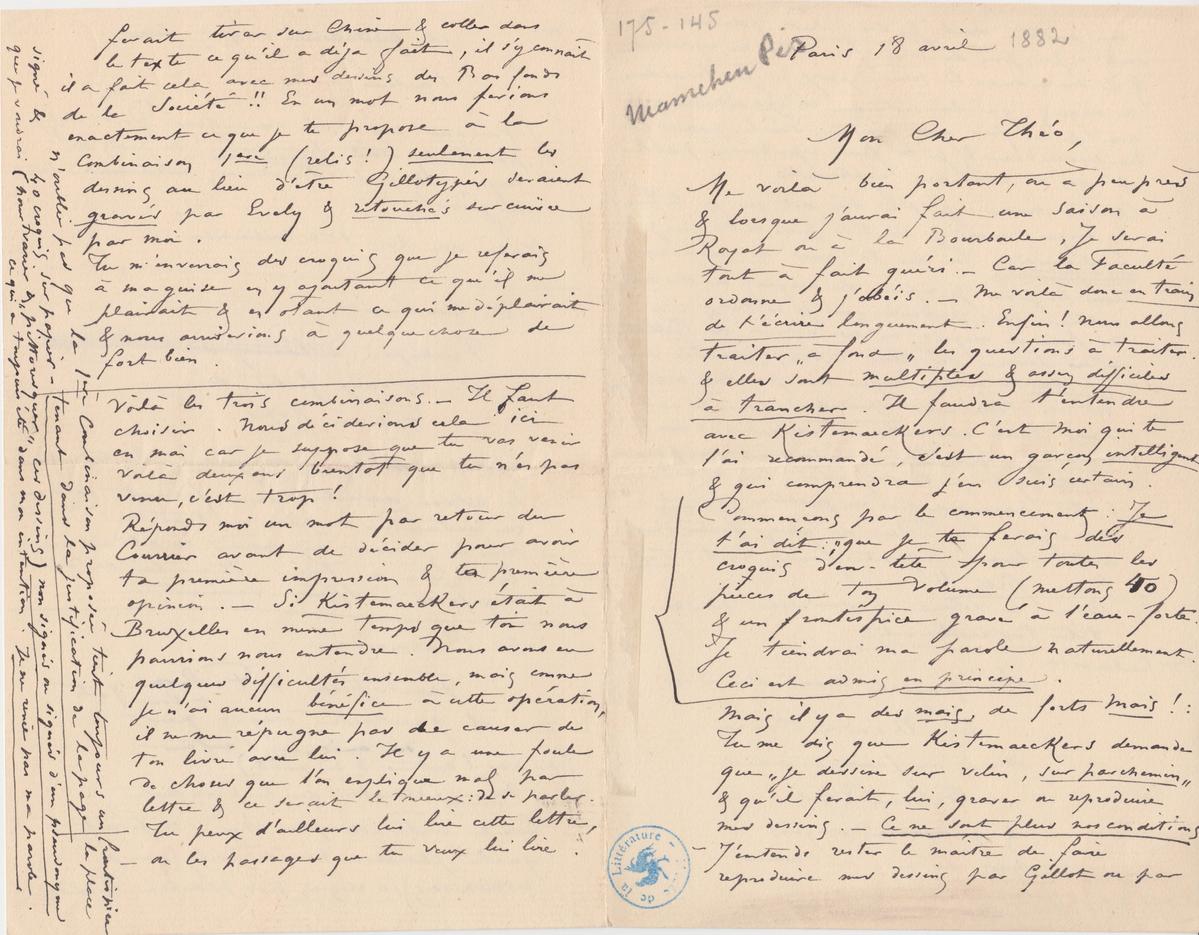 175-145
Mamehen Pis
Paris 18 avril 1882
Mon Cher Théo,
Me voilà bien portant, ou à peu près
& lorsque j'aurai fait une saison à
Royat ou à la Bourboule, je serai
tout à fait guéri. — Car la Faculté
ordonne & j'obéis. — Me voilà donc en train
de t'écrire longuement. Enfin ! nous allons
traiter „à fond„ les questions à traiter.
& elles sont multiples & assez difficiles
à trancher. Il faudra t'entendre
avec Kistemaeckers. C'est moi qui te
l'ai recommandé, c'est un garçon intelligent
& qui comprendra j'en suis certain.
Commençons par le commencement : Je
t'ai dit : „que je te ferais des
croquis d'en-tête pour toutes les
pièces de ton Volume (mettons 40)
& un frontispice gravé à l'eau-forte.
Je tiendrai ma parole naturellement.
Ceci est admis en principe.
Mais il y a des mais, de forts Mais ! :
Tu me dis que Kistemaeckers demande
que „je dessine sur velin, sur parchemin„
& qu'il ferait, lui, graver ou reproduire
mes dessins. — Ce ne sont plus nos conditions
— J'entends rester le maître de faire
reproduire mes dessins par Gillot ou par
de la Littérature
ferait tirer sur Chine & coller dans
le texte ce qu'il a déja fait, il s'y connaît
il a fait cela avec mes dessins des Bas fonds
de la Société !! En un mot nous ferions
exactement ce que je te propose à la
Combinaison 1ere (relis !) seulement les
dessins au lieu d'être Gillotypés seraient
gravés par Evely & retouchés sur cuivre
par moi.
Tu m'enverrais des croquis que je referais
à ma guise en y ajoutant ce qu'il me
plairait & en ôtant ce qui me déplairait
& nous arriverions à quelque chose de
fort bien.
Voilà les trois combinaisons. — Il faut
choisir. Nous déciderions cela ici
en mai car je suppose que tu vas venir
voilà deux ans bientôt que tu n'es pas
venu, c'est trop !
Réponds moi un mot par retour du
Courrier avant de décider pour avoir
ta première impression & ta première
opinion. — Si Kistemaeckers était à
Bruxelles en même temps que toi nous
pourrions nous entendre. Nous avons eu
quelques difficultés ensemble, mais comme
je n'ai aucun bénéfice à cette opération,
il ne me répugne pas de causer de
ton livre avec lui. Il y a une foule
de choses que l'on explique mal par
lettre & ce serait le mieux : de se parler.
Tu peux d'ailleurs lui lire cette lettre,
— ou les passages que tu veux lui lire.
n'oublie pas que la 1ere Combinaison proposée tient toujours un frontispice
signé & 40 croquis sur papier — tenant dans la justification de la page, à la place
que je voudrai (pour trouver le „pittoresque„ ces dessins) non signés ou signés d'un pseudonyme
ce qui a toujours été dans mon intention. Je ne renie pas ma parole.